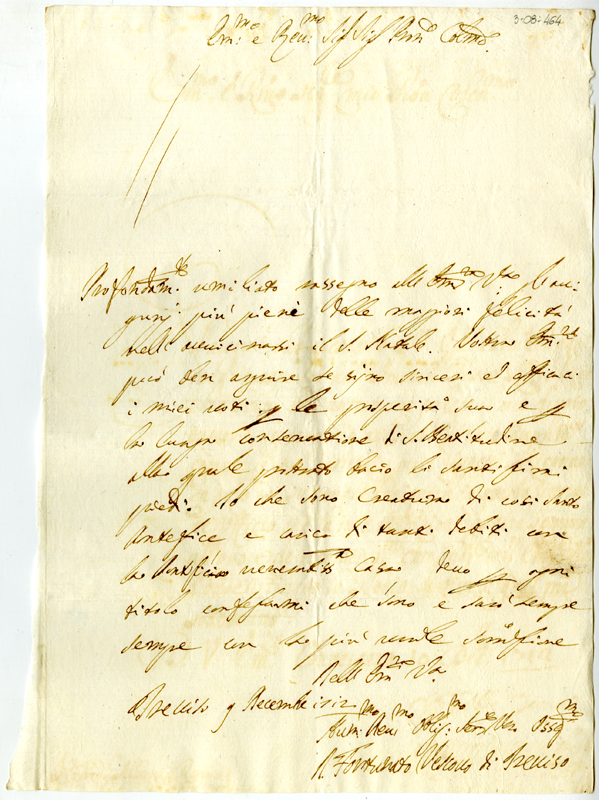 3-08-464
Em.mo e Rev.mo Sig Sig Pron Colmo.
Profondam.te umiliato rassegno alle Em.za V.ra gli au
gurj più pieni delle magiori felicità
nell avvicinarsi il S. Natale. Vostra Em.za
può ben arguire se sijno sinceri ed efficaci
i miei voti p le prosperità sue e p
la lunga conservatione di S. Beatitudine
alla quale prostrato bacio li santissimi
piedi. Io che sono Creatura di così Santo
Pontefice e carico di tanti debiti con
la Pontificia Casa devo p ogni
titolo confessarmi che sono e sarò sempre
sempre con la più umile
Dell Em.za V.ra
Treviso 9 Decembre
Hum. Dev.mo Oblig. Ser.re Vro Osseq.mo
Fortunato Vescovo di Treviso